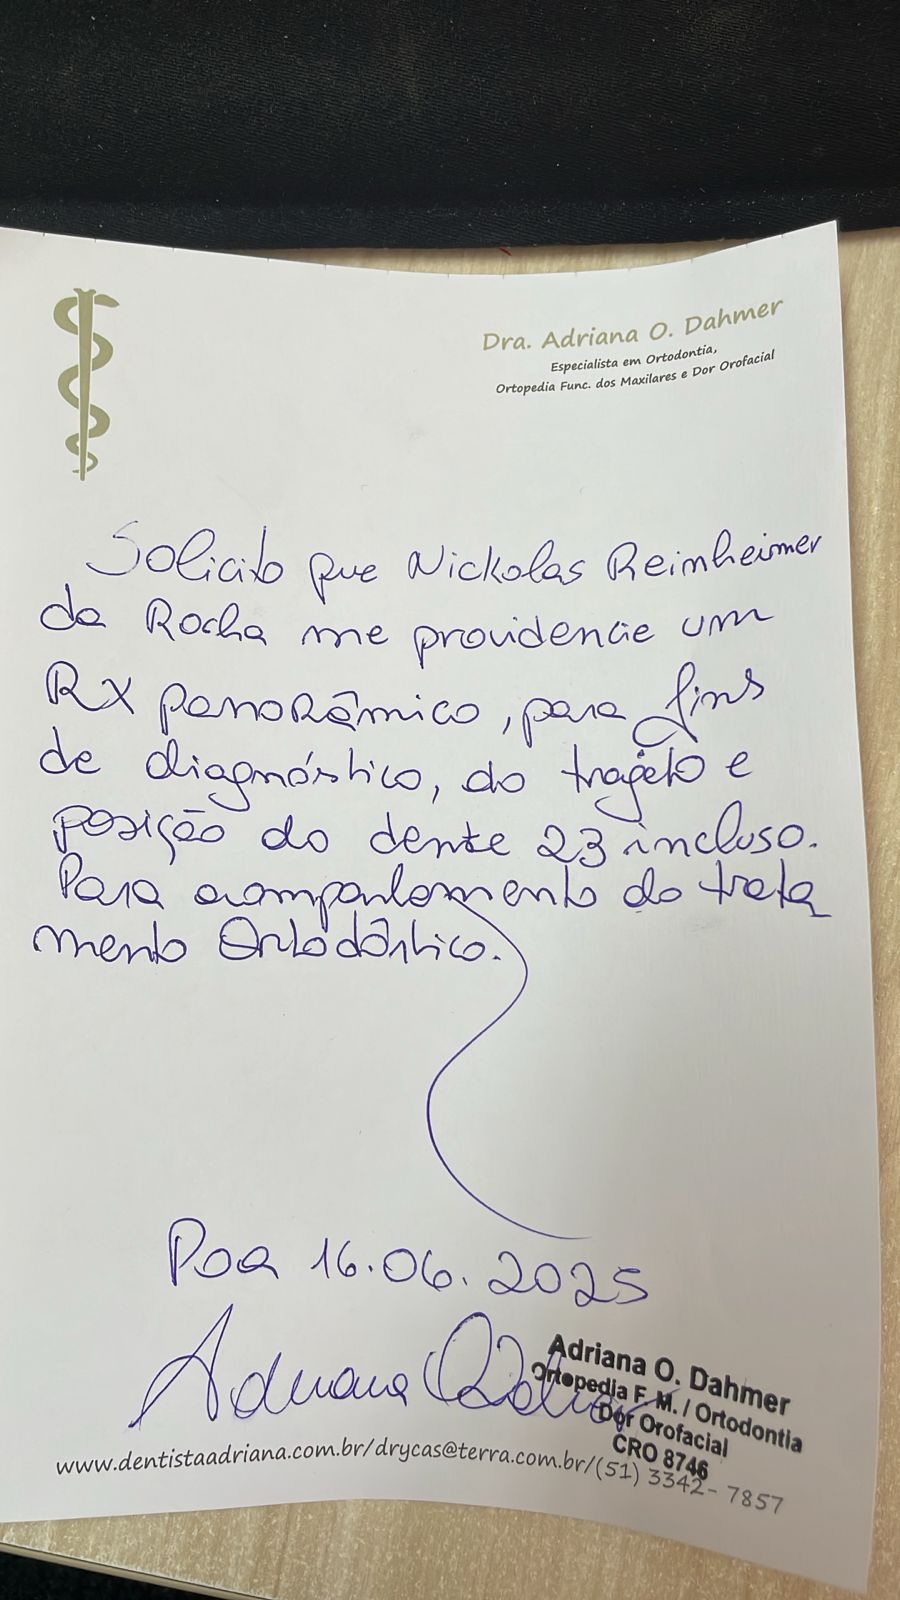 Dra. Adriana O. Dahmer
Especialista em Ortodontia,
Ortopedia Func. dos Maxilares e Dor Orofacial
Solicito que Nickolas Reimheimer
da Rocha me providencie um
RX panorâmico, para fins
de diagnóstico, do trajeto e
posição do dente 23 incluso.
Para acompanhamento do trata
mento Ortodôntico.
Poa 16.06.2025
Adriana O. Dahmer
Adriana O. Dahmer
Ortopedia F. M. / Ortodontia
Dor Orofacial
CRO 8746
www.dentistaadriana.com.br/drycas@terra.com.br/(51) 3342-7857